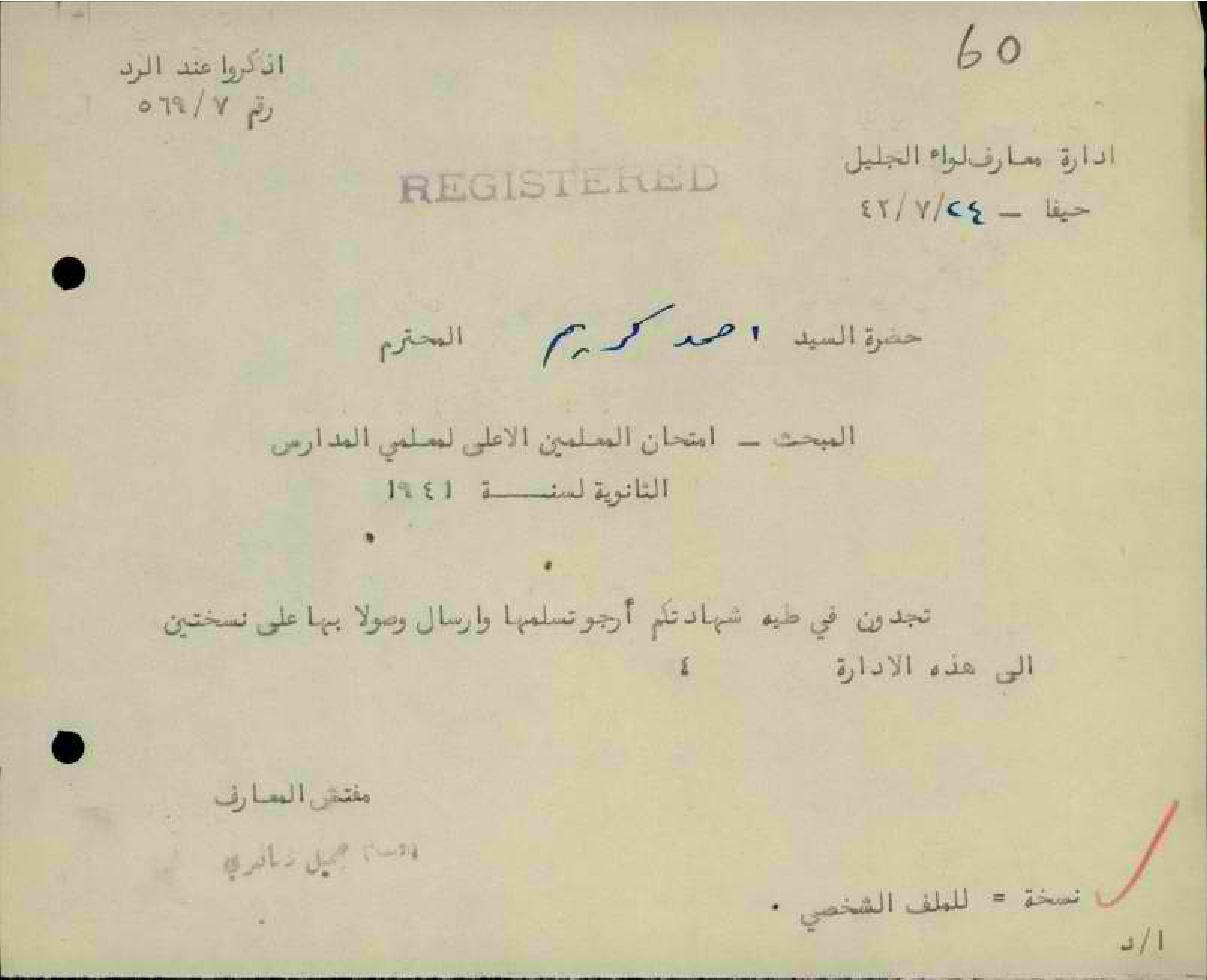 60
اذكروا عند الرد
رقم ٥٦٩/٧
ادارة معارف لواء الجليل
حيفا – ٤٢/٧/٢٤
REGISTERED
حضرة السيد احمد كريم المحترم
المبحث – امتحان المعلمين الاعلى لمعلمي المدارس
الثانوية لسنــــة ١٩٤١
تجدون في طيه شهادتكم أرجو تسلمها وارسال وصولا بها على نسختين
الى هذه الادارة ٤
مفتش المعارف
جميل
نسخة = للملف الشخصي .
ا/د